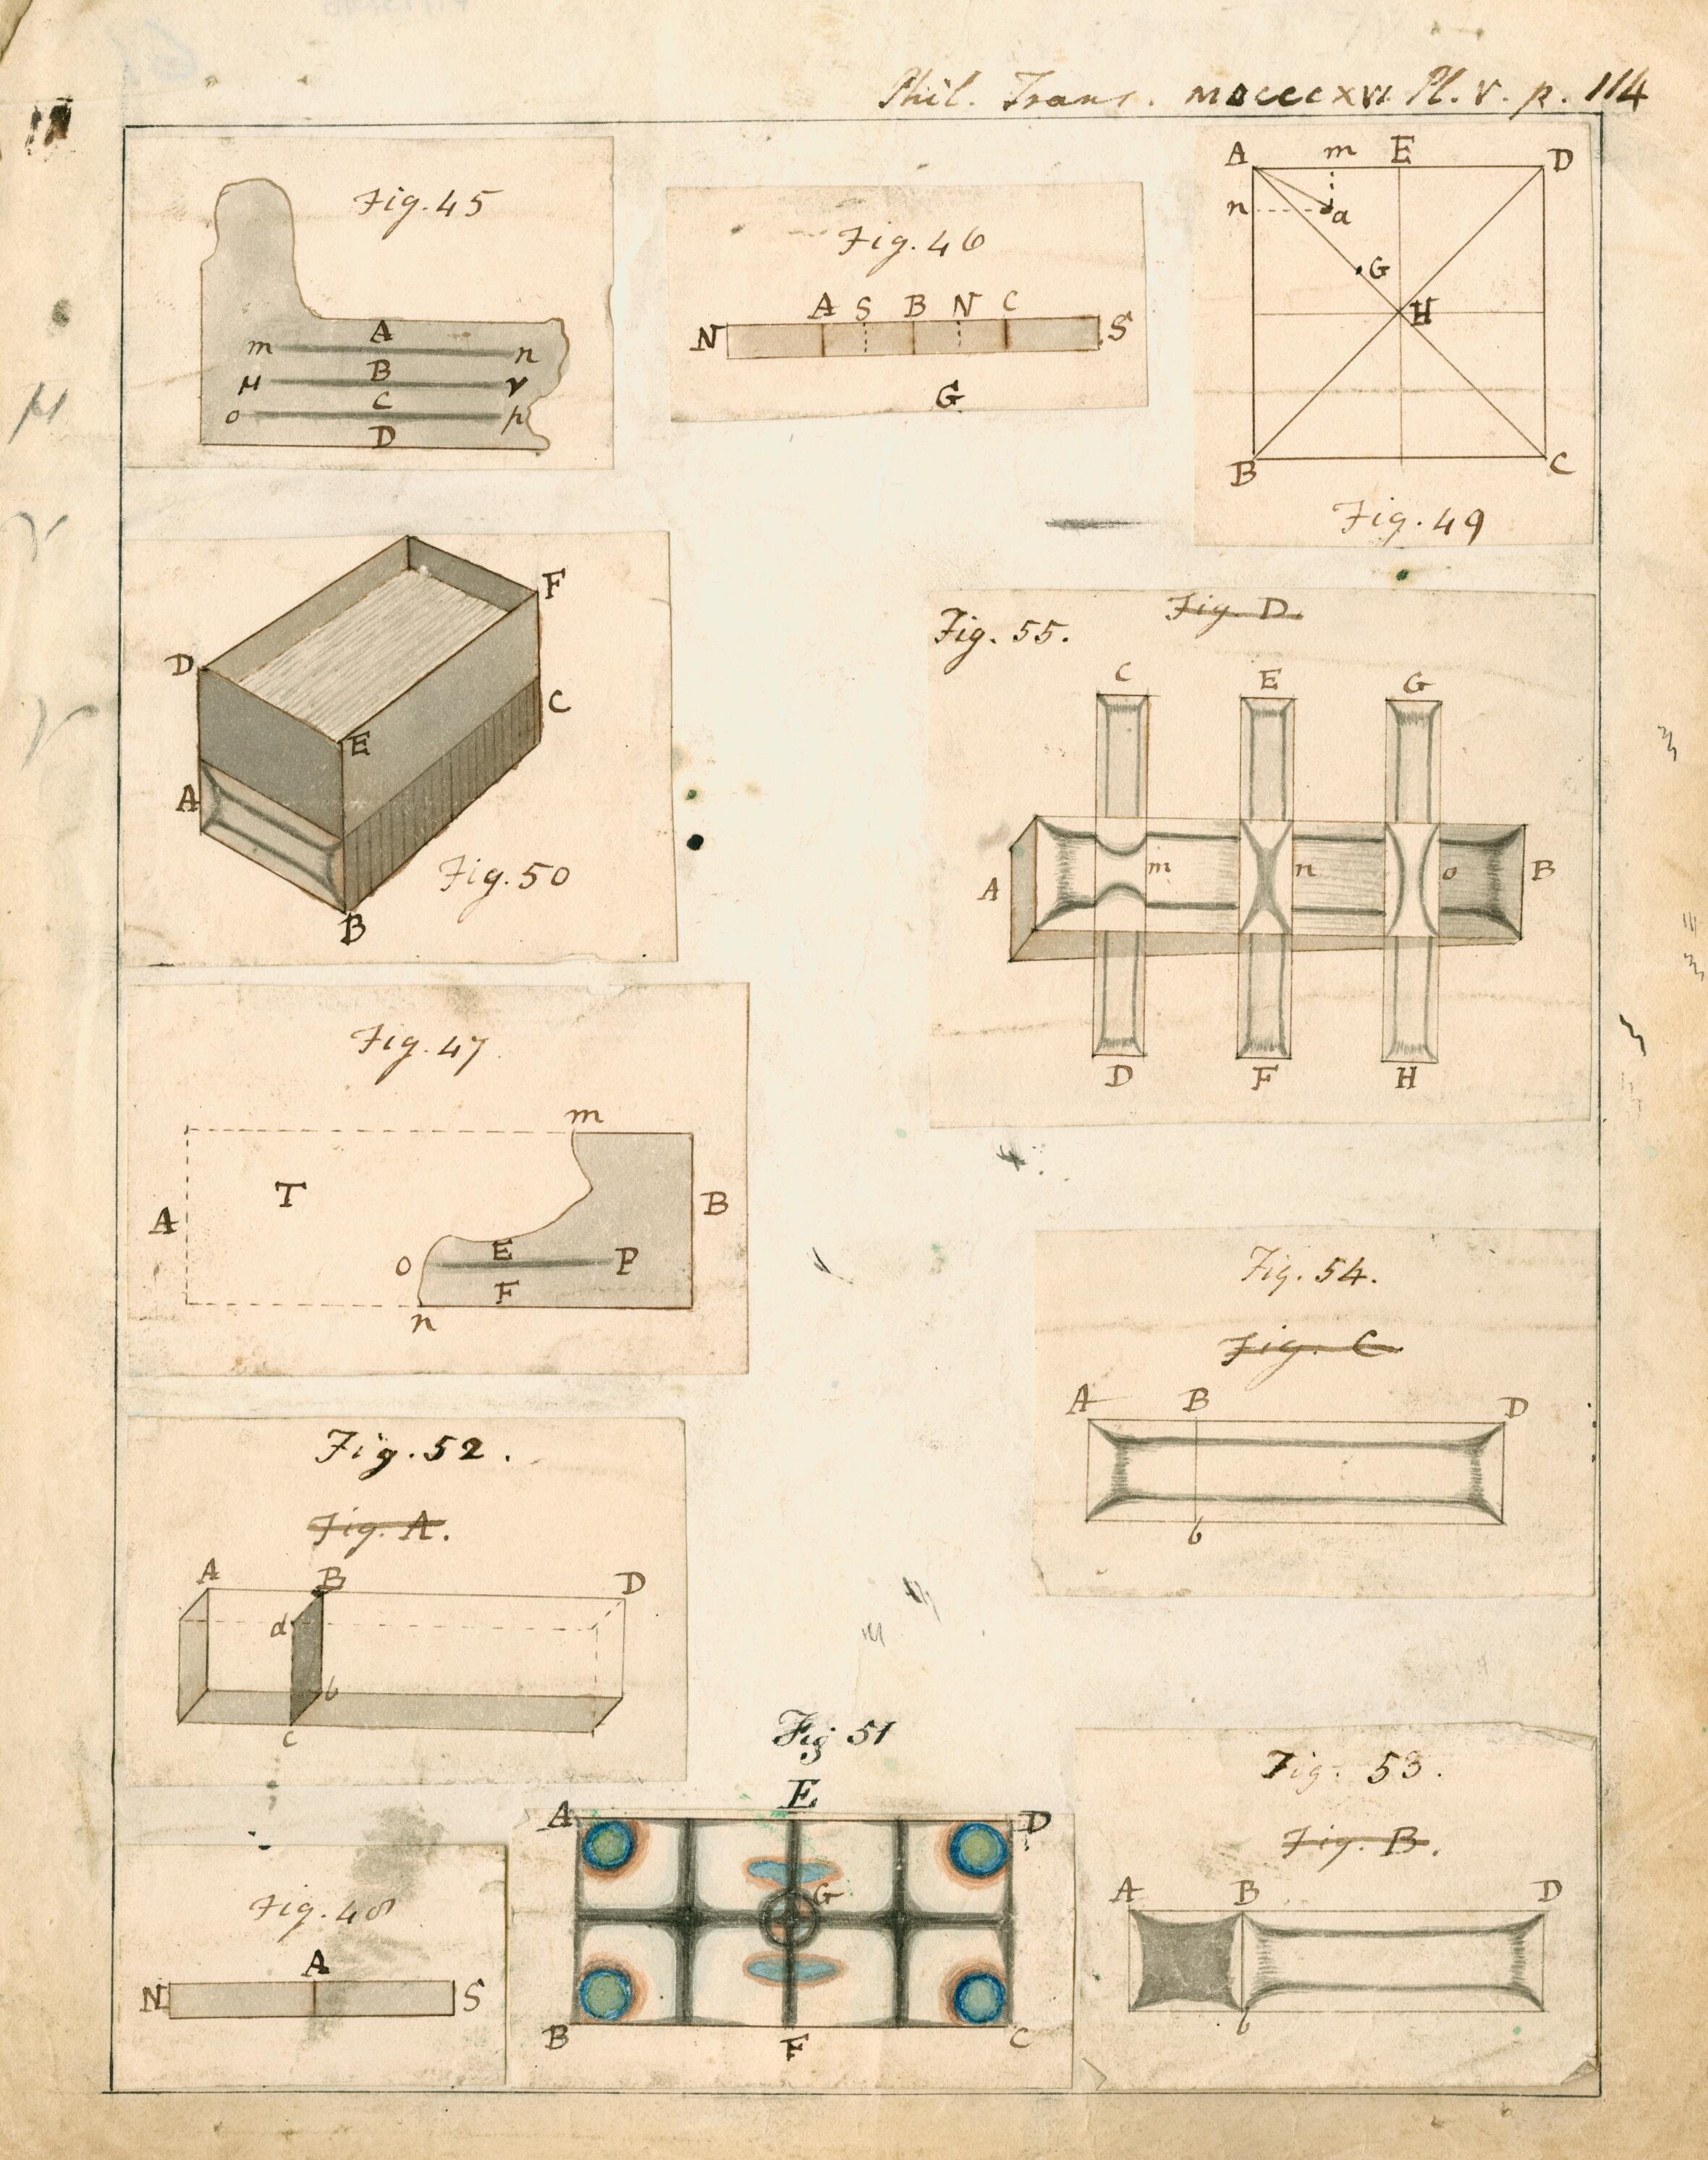 Phil. Trans. MDCCCXVI Pl. V. p. 114
Fig. 45
A
m n
B
μ ν
C
o p
D
Fig. 46
A S B N C
N S
G
A m E D
n a
G
H
B C
Fig. 49
μ
ν
γ
F
D
C
E
A
Fig. 50
B
Fig. D.
Fig. 55.
C E G
A m n o B
D F H
Fig. 47
m
T
A B
E
O P
F
n
Fig. 54.
Fig. C
A B D
b
Fig. 52.
Fig. A.
A B D
d
b
c
Fig 51
E
A D
G
B F C
Fig. 53.
Fig. B.
A B D
b
Fig. 48
A
N S